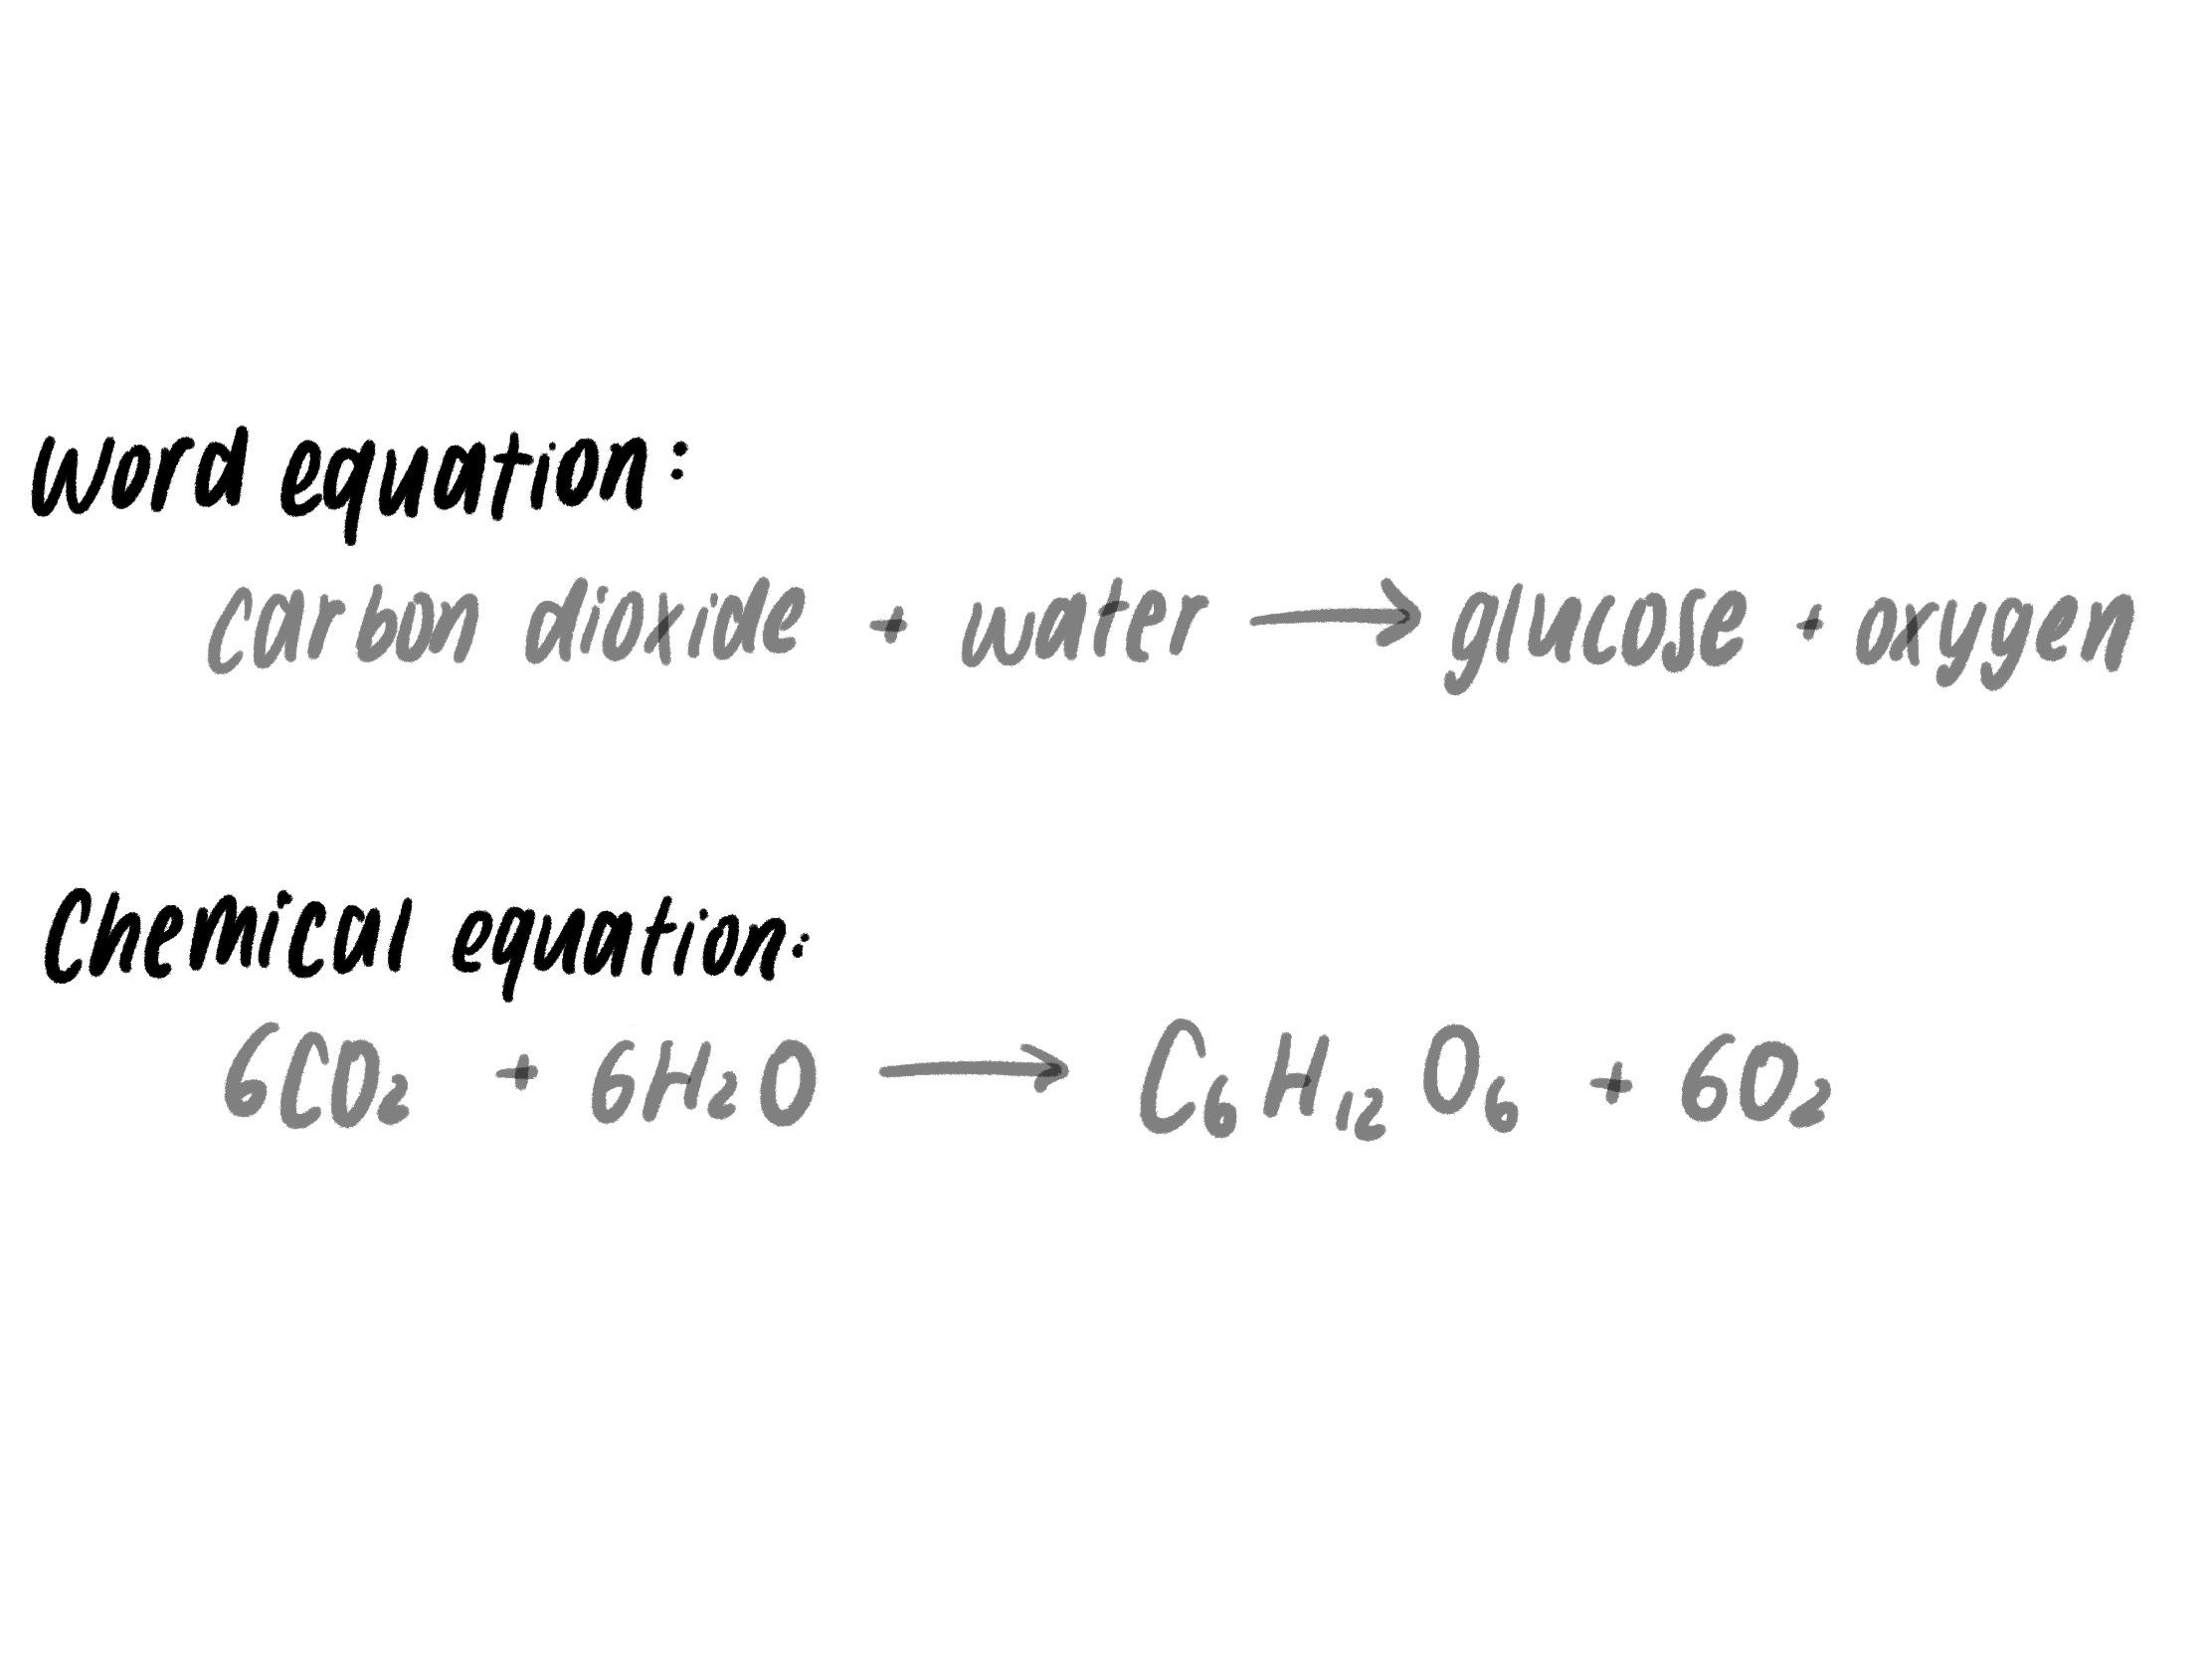 Word equation:
carbon dioxide + water → glucose + oxygen
Chemical equation:
6CO₂ + 6H₂O → C₆H₁₂O₆ + 6O₂